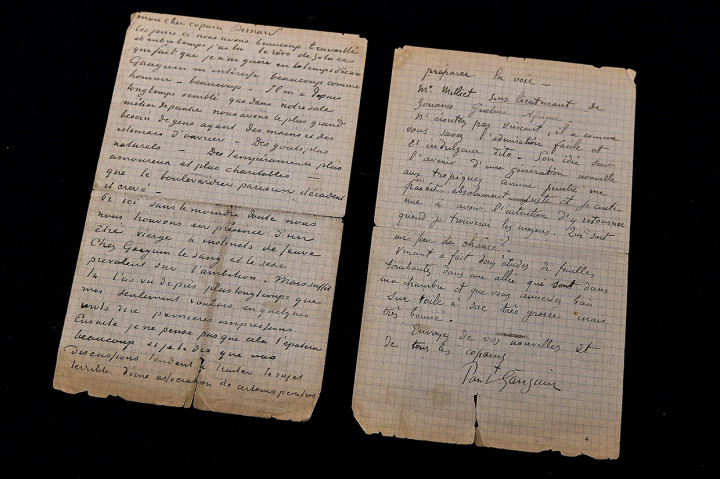 mon cher copain Bernard
ces jours ci nous avons beaucoup travaillé
et entretemps j'ai lu le rêve de Zola ce
qui fait que je n'ai guère eu le temps d'écrire
Gauguin m'intéresse beaucoup comme
homme – beaucoup – Il m'a depuis
longtemps semblé que dans notre sale
métier de peintre nous avons le plus grand
besoin de gens ayant des mains et des
estomacs d'ouvrier – Des goûts plus
naturels – Des tempéraments plus
amoureux et plus charitables –
que le boulevardier parisien décadent
et crevé –
Or ici sans le moindre doute nous
nous trouvons en présence d'un
être vierge à instincts de fauve
Chez Gauguin le sang et le sexe
prévalent sur l'ambition. Mais suffit
tu l'as vu de près plus longtemps que
moi seulement voulais en quelques
mots dire premières impressions.
Ensuite je ne pense pas que cela t'épatera
beaucoup si je te dis que nos
discussions tendent à traiter le sujet
terrible d'une association de certains peintres
préparer la voie –
Mr Milliet sous lieutenant de
Zouaves Guelma Afrique
N'écoutez pas Vincent, il a comme
vous savez l'admiration facile et
l'indulgence dito. Son idée sur
l'avenir d'une génération nouvelle
aux tropiques comme peintre me
parait absolument juste et je conti-
nue à avoir l'intention d'y retourner
quand je trouverai les moyens. Qui sait
un peu de chance?
Vincent a fait deux études de feuilles
tombantes dans une allée qui sont dans
ma chambre et que vous aimeriez bien
Sur toile à sac très grosse mais
très bonne.
Envoyez de vos nouvelles et
de tous les copains
Paul Gauguin